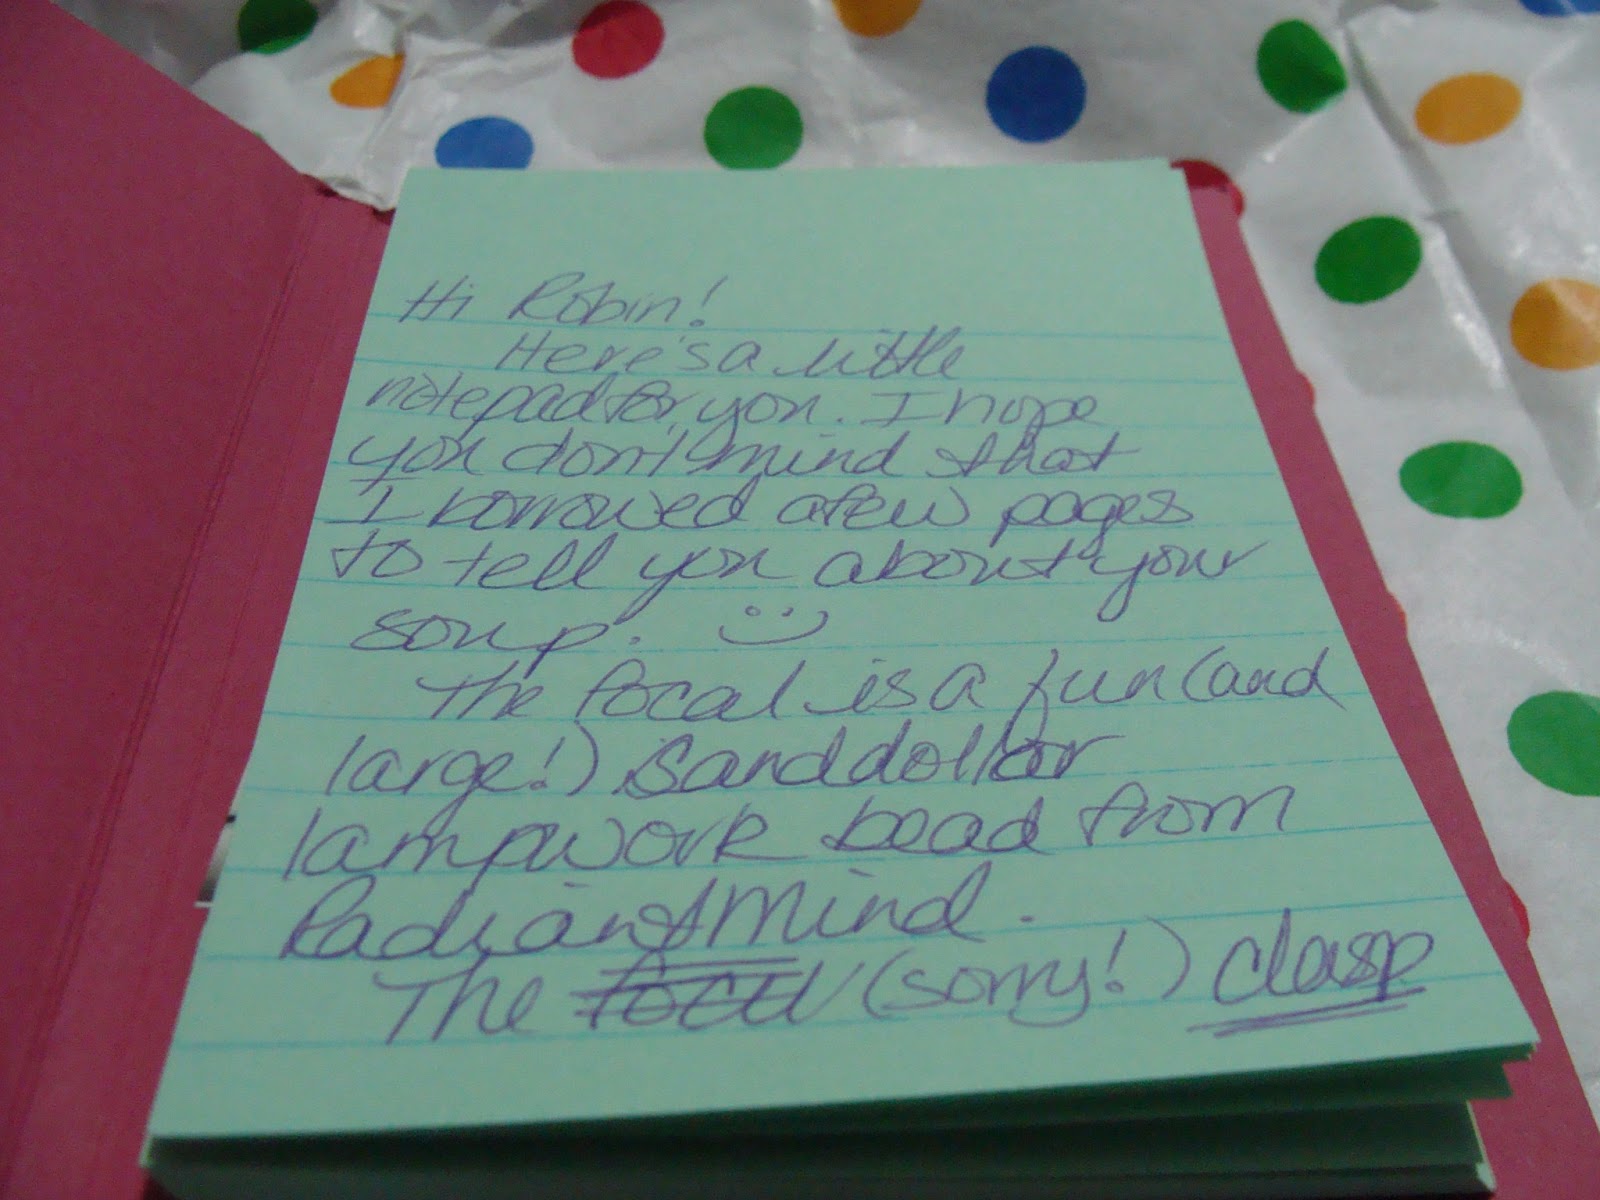 Hi Robin!
Here's a little
notepad for you. I hope
you don't mind that
I borrowed a few pages
to tell you about your
soup. :)
The focal is a fun (and
large!) sanddollar
lampwork bead from
RadiantMind.
The focal (sorry!) clasp